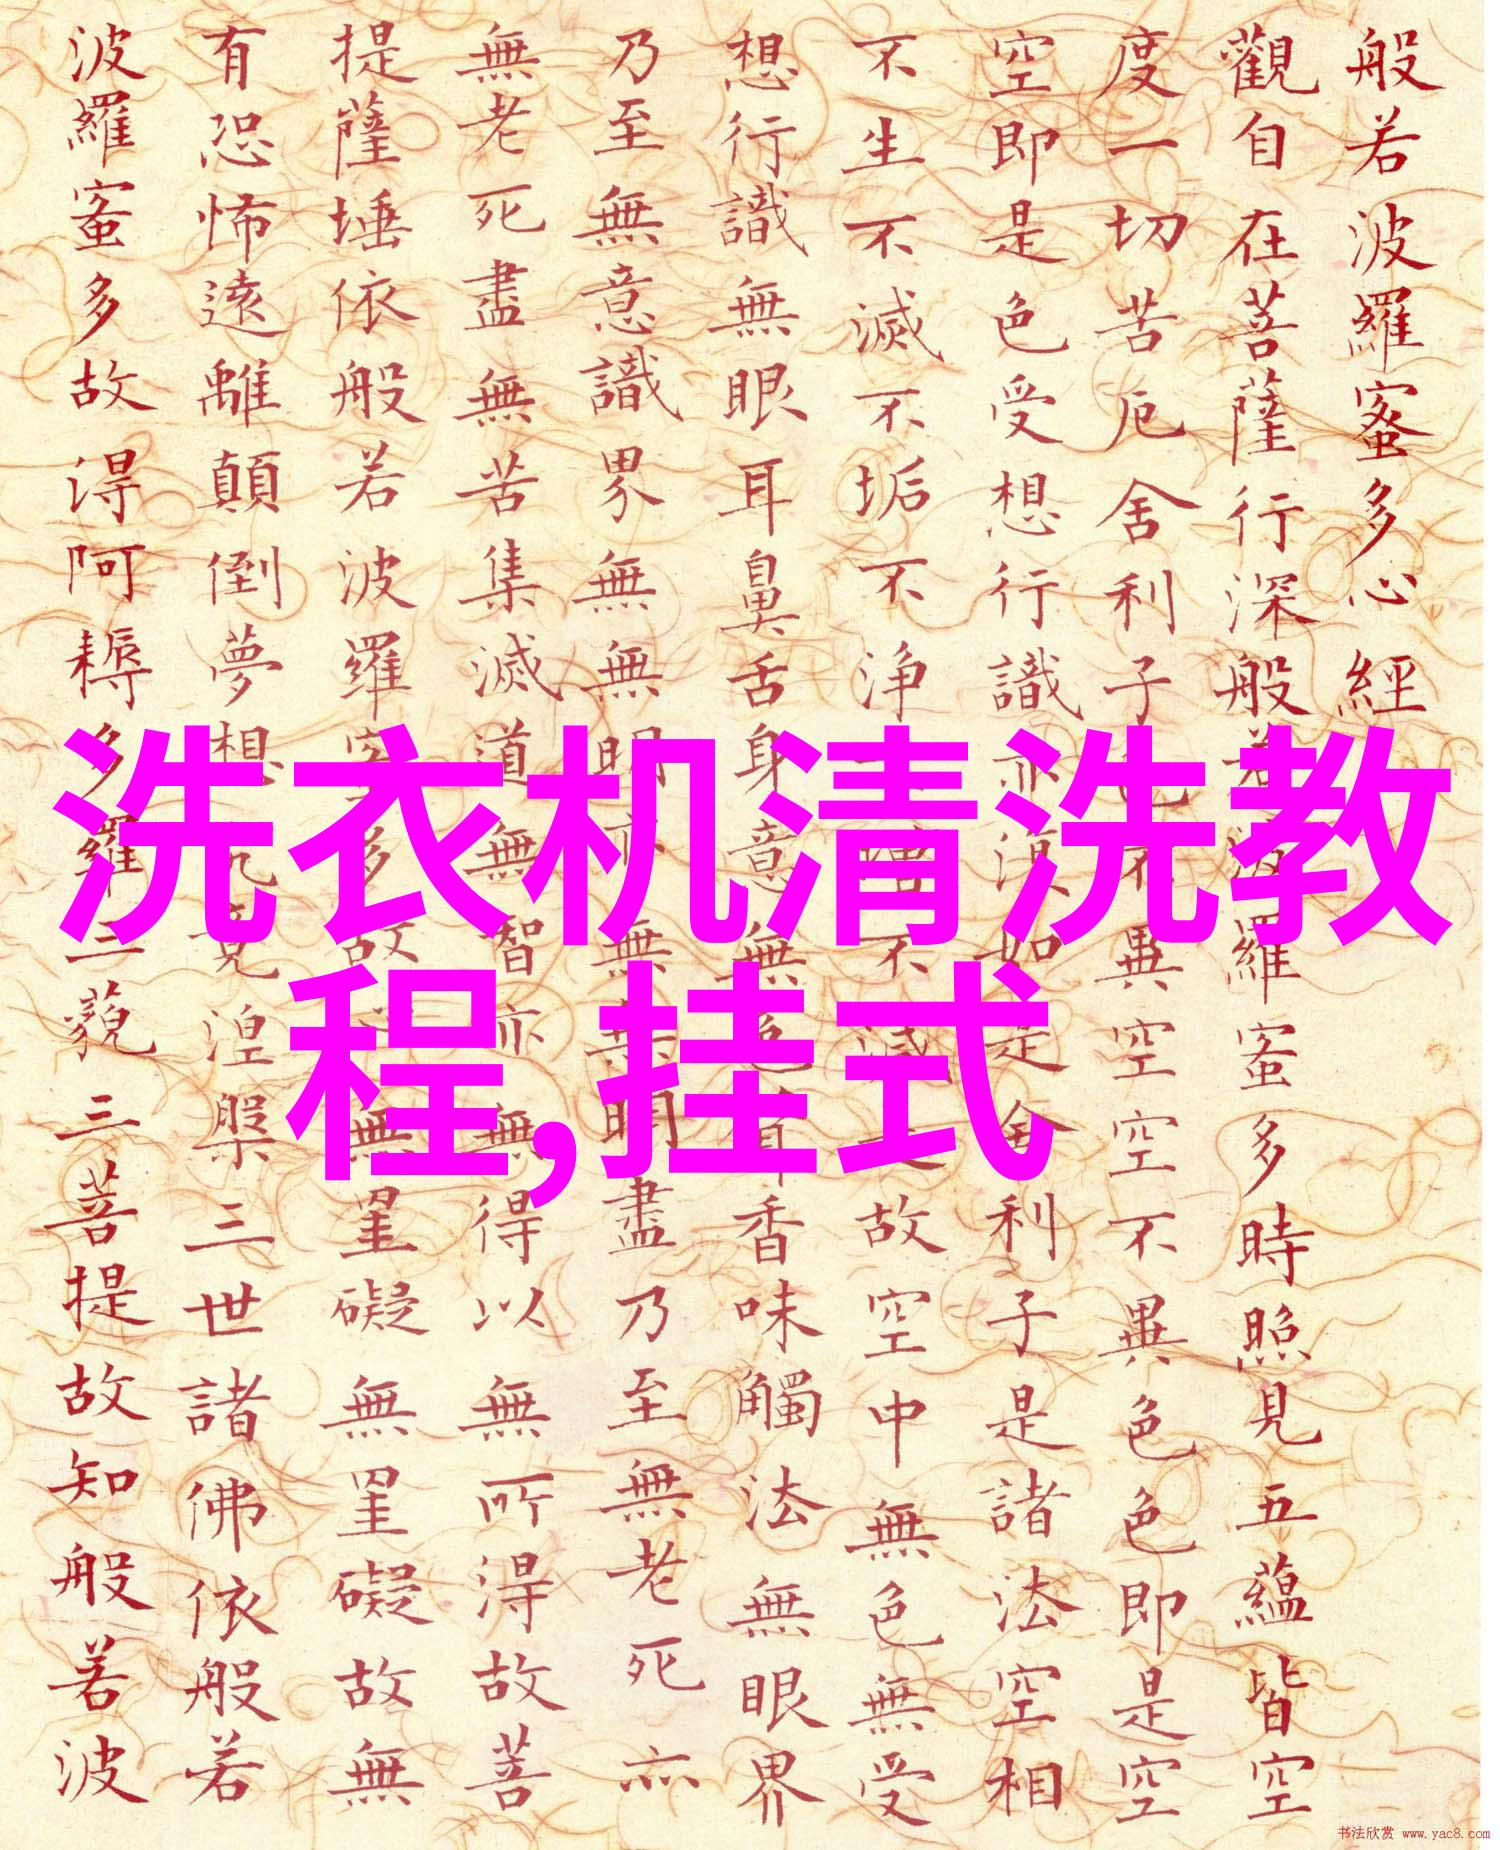 般若波羅蜜多心經
觀自在菩薩行深般若波羅蜜多時照見五蘊皆空
度一切苦厄舍利子色不異空空不異色色即是空
空即是色受想行識亦復如是舍利子是諸法空相
不生不滅不垢不净不增不減是故空中無色無受
想行識無眼耳鼻舌身意無色聲香味觸法無眼界
乃至無意識界無無明亦無無明盡乃至無老死亦
無老死盡無苦集滅道無智亦無得以無所得故菩
提薩埵依般若波羅蜜多故心無罣礙無罣礙故無
有恐怖遠離顛倒夢想究竟涅槃三世諸佛依般若
波羅蜜多故得阿耨多羅三藐三菩提故知般若波
洗衣机清洗教
程,挂式
书法欣赏 www.yac8.com